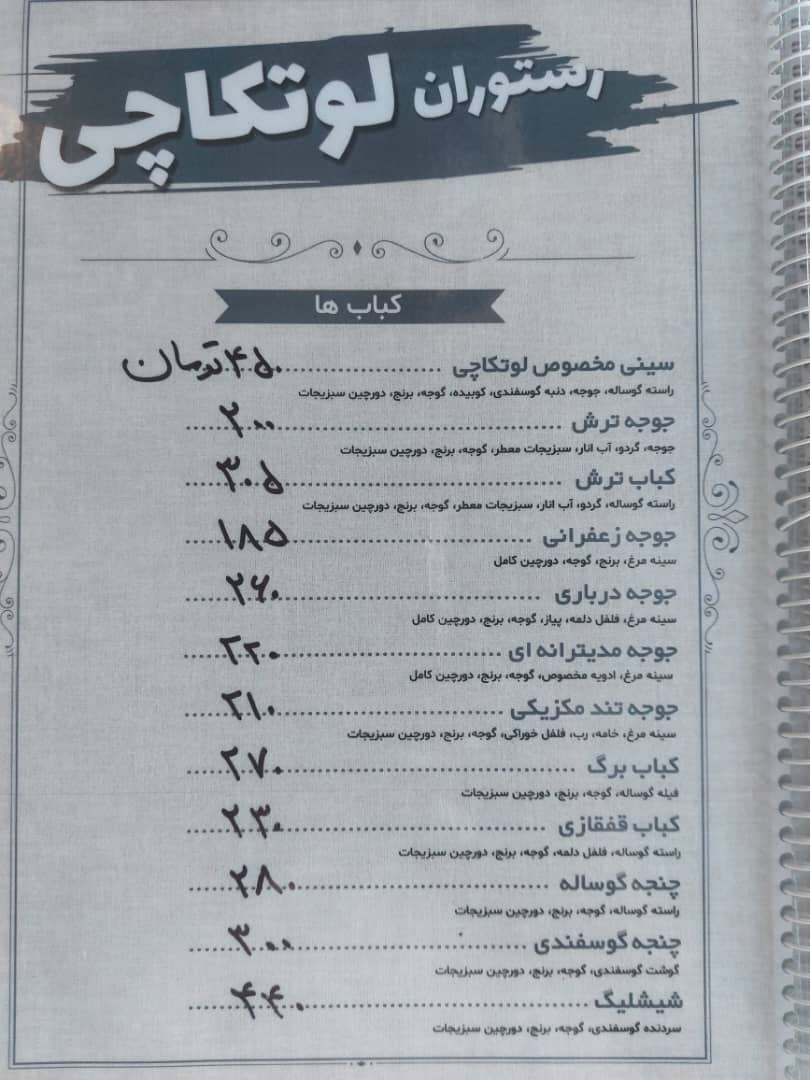 رستوران لوتکاچی
کباب ها
سینی مخصوص لوتکاچی ۴۵۰ تومان
راسته گوساله، جوجه، دنبه گوسفندی، کوبیده، گوجه، برنج، دورچین سبزیجات
جوجه ترش ۲۰۰
جوجه، گردو، آب انار، سبزیجات معطر، گوجه، برنج، دورچین سبزیجات
کباب ترش ۳۰۵
راسته گوساله، گردو، آب انار، سبزیجات معطر، گوجه، برنج، دورچین سبزیجات
جوجه زعفرانی ۱۸۵
سینه مرغ، برنج، گوجه، دورچین کامل
جوجه درباری ۲۶۰
سینه مرغ، فلفل دلمه، پیاز، گوجه، برنج، دورچین کامل
جوجه مدیترانه ای ۲۲۰
سینه مرغ، ادویه مخصوص، گوجه، برنج، دورچین کامل
جوجه تند مکزیکی ۲۱۰
سینه مرغ، خامه، رب، فلفل خوراکی، گوجه، برنج، دورچین سبزیجات
کباب برگ ۲۷۰
فیله گوساله، گوجه، برنج، دورچین سبزیجات
کباب قفقازی ۲۳۰
راسته گوساله، فلفل دلمه، گوجه، برنج، دورچین سبزیجات
چنجه گوساله ۲۸۰
راسته گوساله، گوجه، برنج، دورچین سبزیجات
چنجه گوسفندی ۳۰۰
گوشت گوسفندی، گوجه، برنج، دورچین سبزیجات
شیشلیگ ۴۴۰
سردنده گوسفندی، گوجه، برنج، دورچین سبزیجات